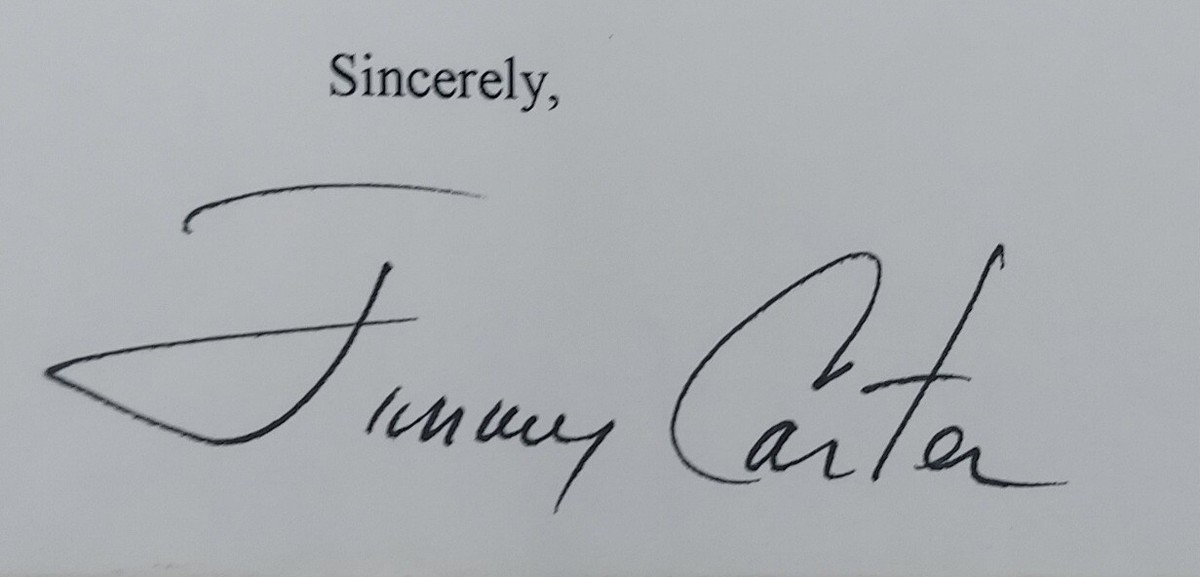 Sincerely,
Jimmy Carter